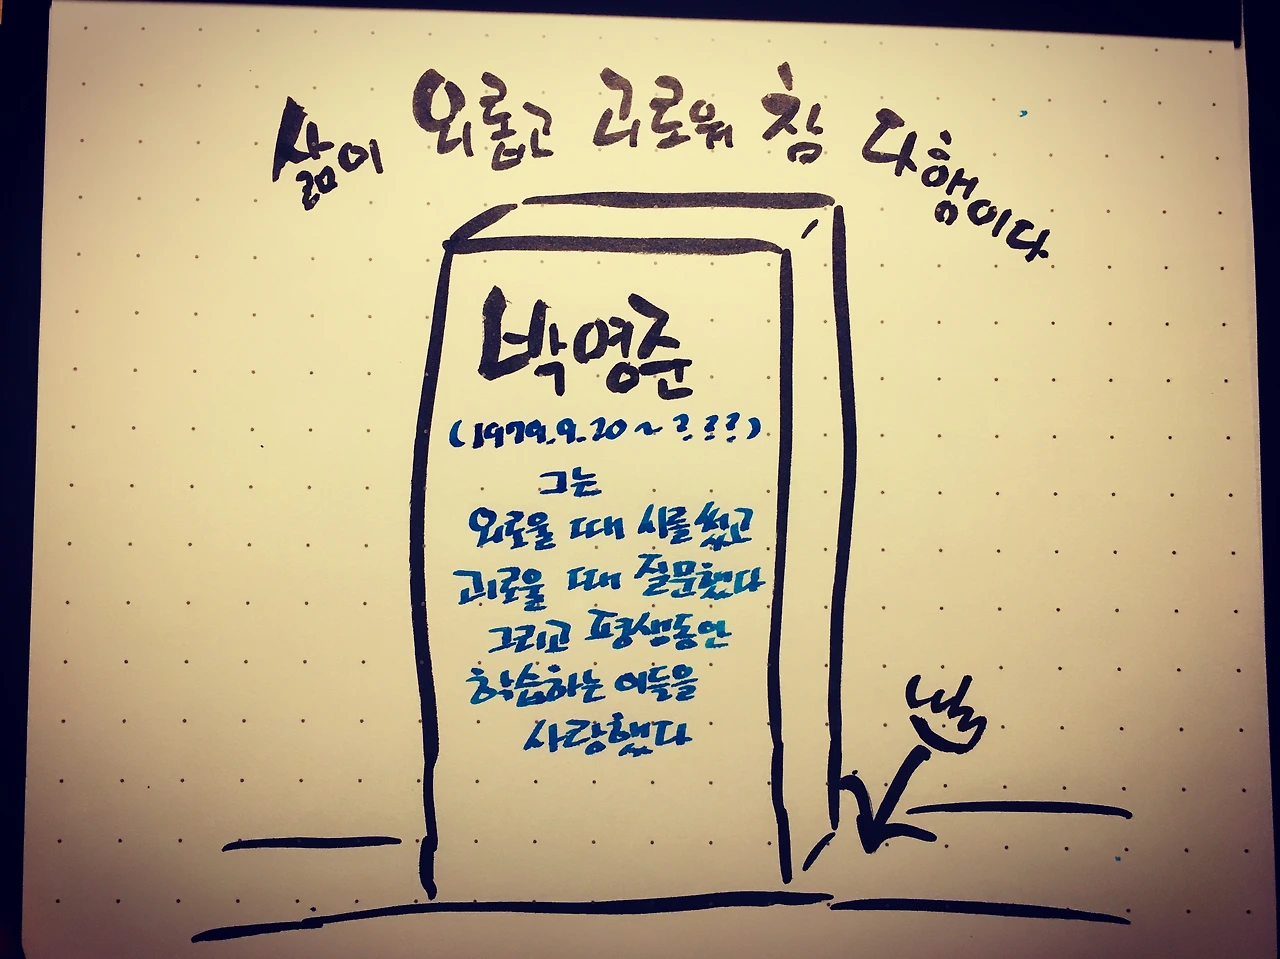 삶이 외롭고 괴로워 참 다행이다
박영준
(1979.9.20 ~ ???)
그는
외로울 때 시를 썼고
괴로울 때 질문했다
그리고 평생동안
학습하는 이들을
사랑했다